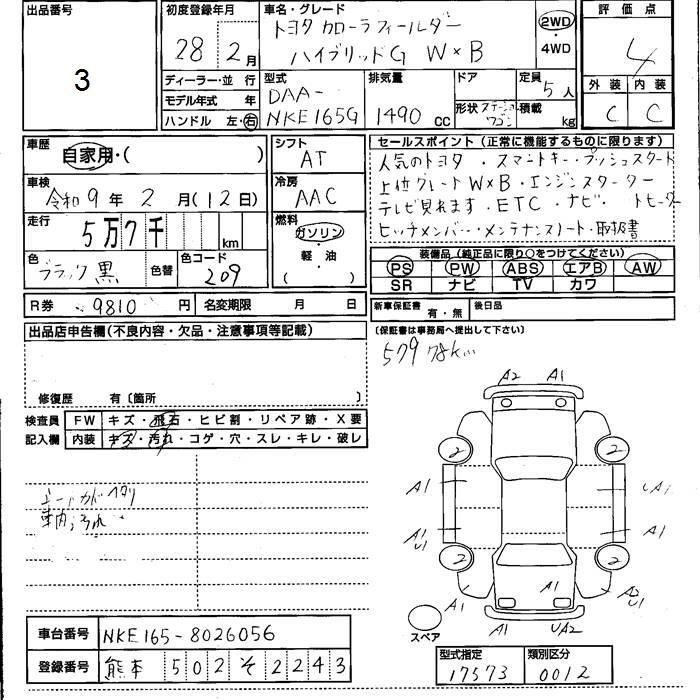 出品番号
3
初度登録年月
28 2月
車名・グレード
トヨタ カローラフィールダー
ハイブリッドG W×B
2WD
・
4WD
評価点
4
ディーラー・並行
モデル年式 年
ハンドル 左・右
型式
DAA-
NKE165G
排気量
1490 cc
ドア
形状 ステーションワゴン
定員
5人
積載
kg
外装 内装
C C
車歴
自家用・( )
車検
令和9年2月(12日)
走行
5万7千 km
色
ブラック黒 色替
色コード
209
シフト
AT
冷房
AAC
燃料
ガソリン
・
軽・油
( )
セールスポイント(正常に機能するものに限ります)
人気のトヨタ・スマートキー・プッシュスタート
上位グレードW×B・エンジンスターター
テレビ見れます・ETC・ナビ・ トモーター
ヒッチメンバー・メンテナンスノート・取扱書
装備品(純正品に限り○をつけてください)
PS PW ABS エアB AW
SR ナビ TV カワ
R券 9810円 名変期限 月 日
新車保証書 有・無 後日品
(保証書は事務局へ提出して下さい)
出品店申告欄(不良内容・欠品・注意事項等記載)
修復歴 有〔箇所 〕
検査員 FW キズ・飛石・ヒビ割・リペア跡・X要
記入欄 内装 キズ・汚れ・コゲ・穴・スレ・キレ・破レ
579 78K
A2 A1
2 2
A1 UA1
A1 U1 A1
2 2
A1 A1 A1 A2 U1
A1 UA2
スペア
車台番号 NKE165-8026056
登録番号 熊本 502 そ 2243
型式指定 類別区分
17573 0012